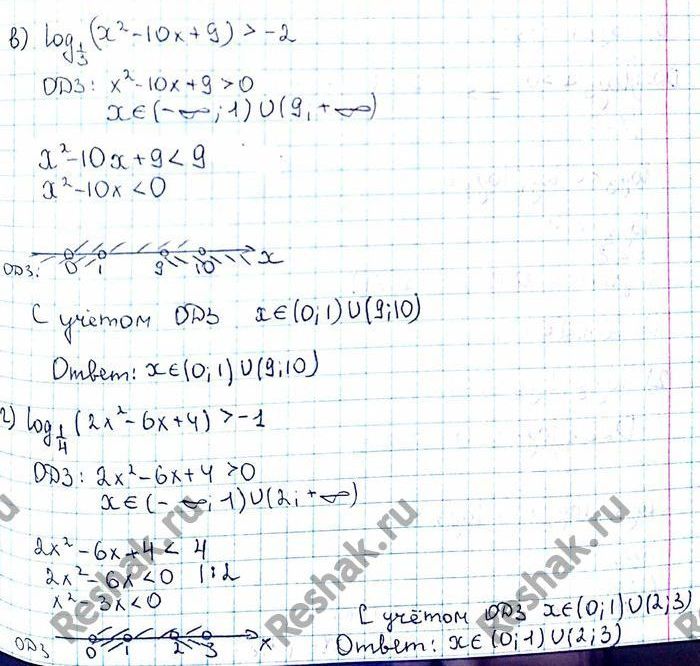 в) log_{1/3}(x²-10x+9) > -2
ОДЗ: x²-10x+9 >0
x∈(-∞; 1)∪(9; +∞)
x²-10x+9 < 9
x²-10x < 0
ОДЗ: 0 1 9 10 x
С учётом ОДЗ x∈(0;1)∪(9;10)
Ответ: x∈(0;1)∪(9;10)
г) log_{1/4}(2x²-6x+4) > -1
ОДЗ: 2x²-6x+4 >0
x∈(-∞; 1)∪(2; +∞)
2x²-6x+4 < 4
2x²-6x<0 |:2
x²-3x<0
ОДЗ 0 1 2 3 x
С учётом ОДЗ x∈(0;1)∪(2;3)
Ответ: x∈(0;1)∪(2;3)
Reshak.ru
Reshak.ru
Reshak.ru